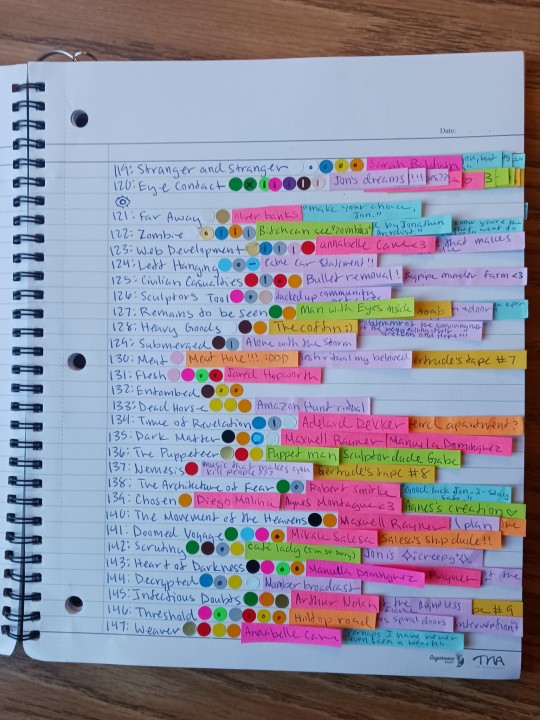 Date:
119: Stranger and Stranger Sarah Baldwin
120: Eye Contact Jon's dreams !!!
121: Far Away oliver banks "make your choice, Jon."
122: Zombie Bitch can see zombies by Jonathan
123: Web Development annabelle Cane <3 that makes
124: Left Hanging
125: Civilian Casualties Bullet removal! murder farm <3
126: Sculptor's Tool fucked up community
127: Remains to be seen Man with Eyes door open
128: Heavy Goods The coffin :)
129: Submerged Alone with the storm
130: Meat Meat Hole!!! :DDD ritual my beloved Gertrude's tape #7
131: Flesh Jared Hopworth
132: Entombed
133: Dead Horse Amazon Hunt ritual
134: Time of Revelation Adelard Dekker apartment?
135: Dark Matter Maxwell Rayner Manuela Dominguez
136: The Puppeteer Puppet man Sculptor dude Gabe
137: Nemesis music that makes you kill people??? Gertrude's tape #8
138: The Architecture of Fear Robert Smirke Good luck Jon. I- Stay Safe."
139: Chosen Diego Molina Agnes Montague <3 Agnes's creation ♡
140: The Movement of the Heavens Maxwell Rayner plan the
141: Doomed Voyage Mikaele Salesa Salesa's ship dude!!
142: Scrutiny café lady (I'm so sorry) Jon is creepy
143: Heart of Darkness Manuella Dominguez Rayner of the
144: Decrypted Number broadcast
145: Infectious Doubts Arthur Nolan the #9
146: Threshold Hilltop road spiral doors intervention
147: Weaver Annabelle Cane Perhaps I have never even been a
TMA